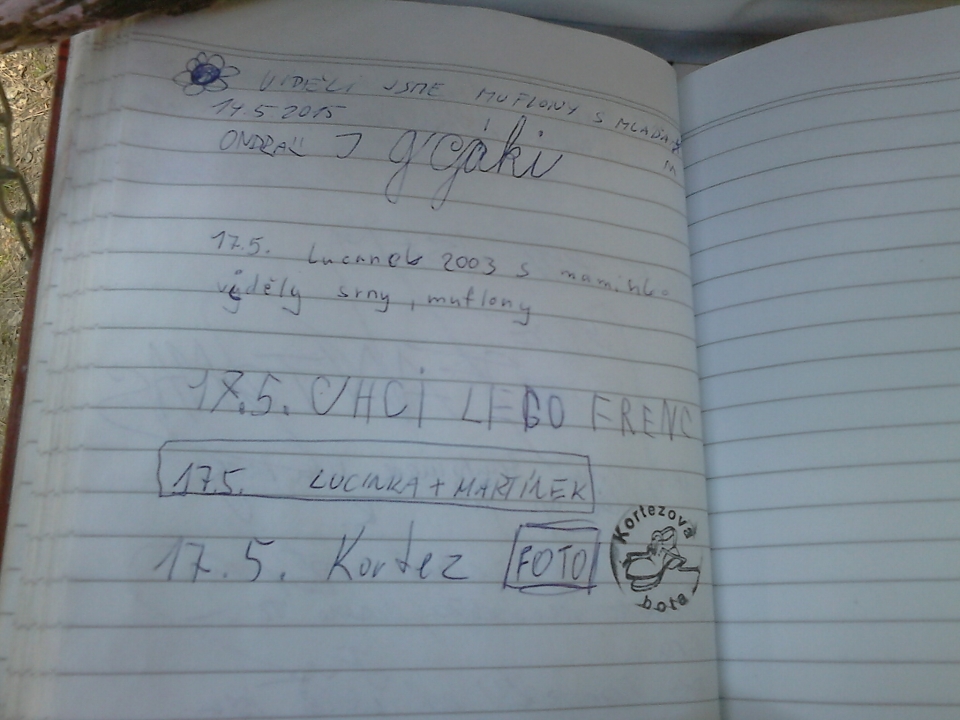 VIDĚLI JSME MUFLONY S MLÁĎATY
14.5.2015
ONDRA
17.5. Lucinek 2003 s maminko
viděly srny, muflony
17.5. CHCI LEGO FRENC
17.5. LUCINKA + MARTÍNEK
17.5. Kortez FOTO
Kortezova
bota